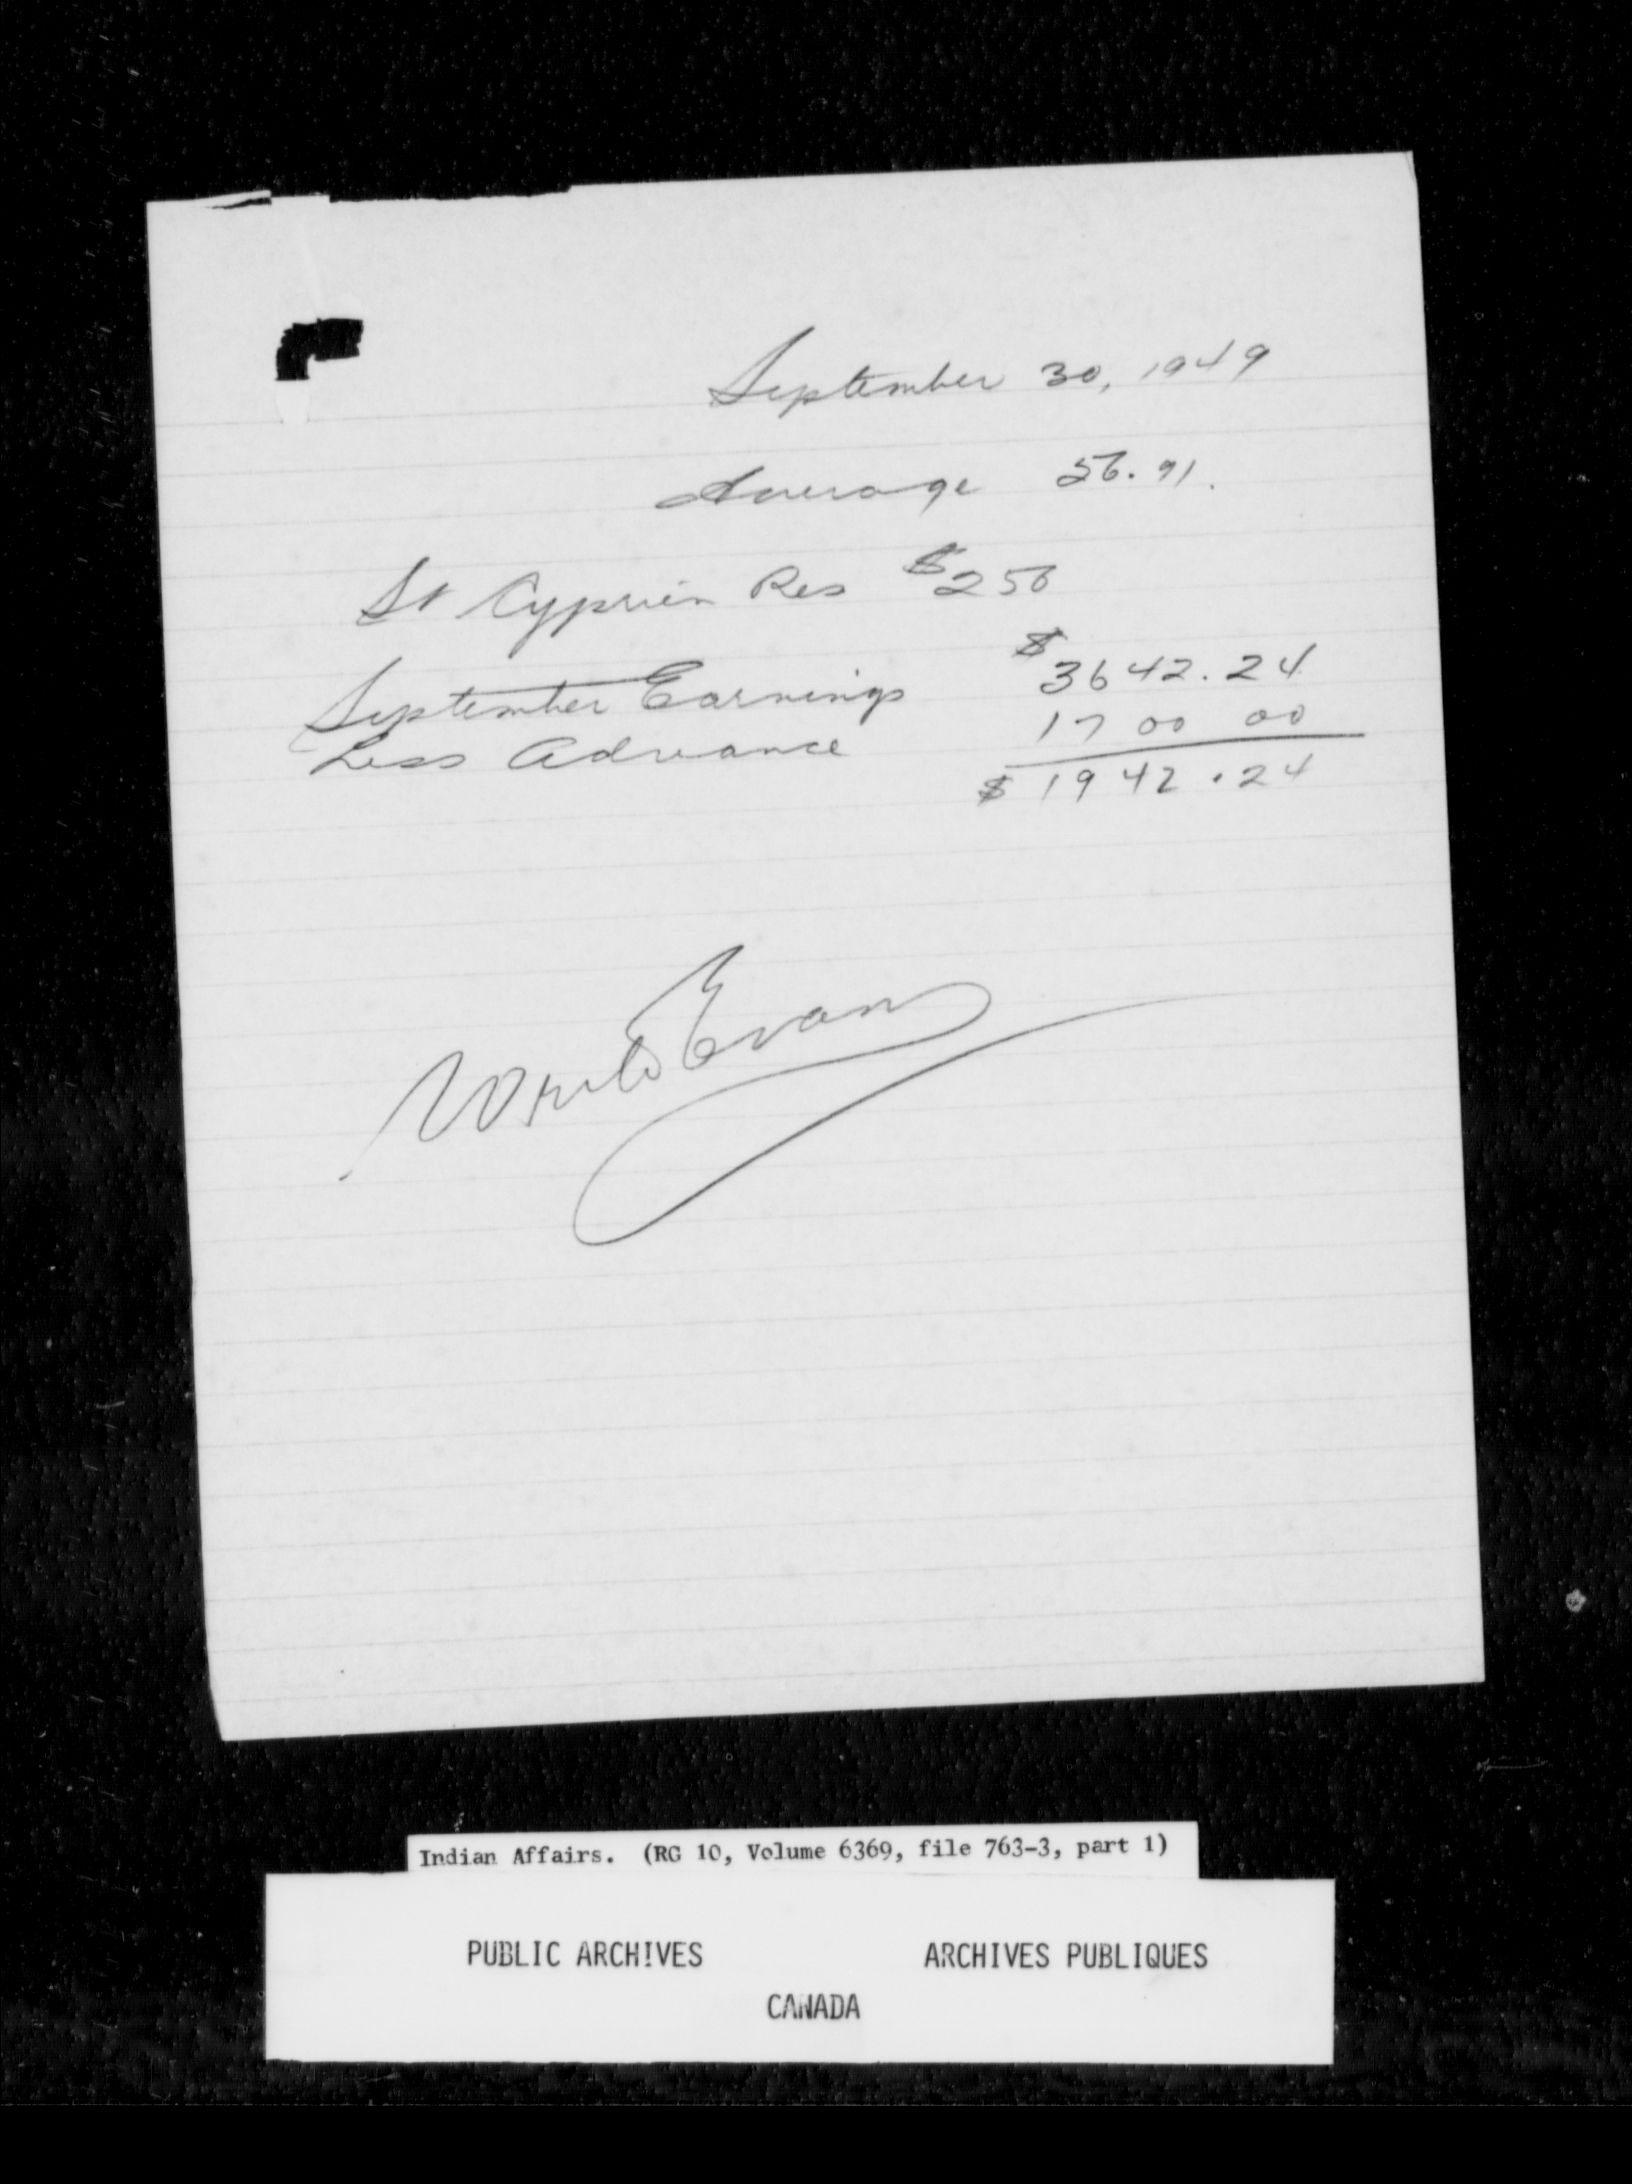 September 30, 1949
Average 56.91.
St Cyprien Res $256
September Earnings $3642.24
Less Advance 1700 00
$1942.24
Evans
Indian Affairs. (RG 10, Volume 6369, file 763-3, part 1)
PUBLIC ARCHIVES ARCHIVES PUBLIQUES
CANADA